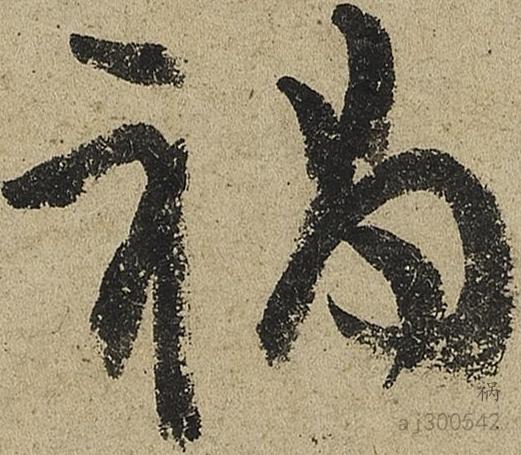 禍
祸
aj300542